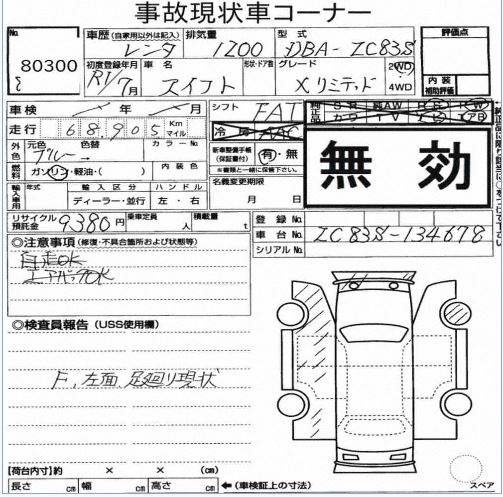 事故現状車コーナー
No. 車歴(自家用以外は記入) 排気量 型式 評価点
80300 レンタ 1200 DBA-ZC83S
初度登録年月 車名 形状・ドア数 グレード 2WD 内装
R1/7月 スイフト Xリミテッド 4WD 補助評価
車検 年 月 シフト FAT 純正品 SR 純AW PS PW
走行 68,905 Km マイル 冷房 AAC カワ TV ナビ エアB
外色 元色 色替 カラーNo. 新車整備手帳(保証書付) 有・無
ブルー 内装色
燃料 ガソリン・軽油・( ) 名義変更期限
輸入車用 年式 輸入区分 ハンドル 月 日
ディーラー・並行 左・右
無効
純正品に限り該当に○をつけて下さい
リサイクル預託金 9380円 乗車定員 人 積載量 t 登録No.
車台No. ZC83S-134678
シリアルNo.
◎注意事項(修復・不具合箇所および状態等)
自走OK
エアバックOK
◎検査員報告(USS使用欄)
F、左面、足廻り現状
【荷台内寸】約 × × (cm)
長さ cm 幅 cm 高さ cm ←(車検証上の寸法) スペア